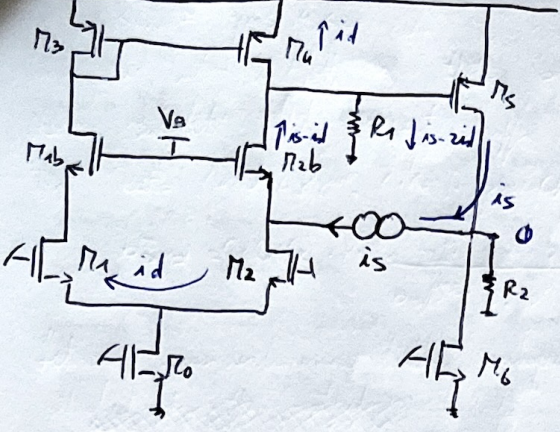 M3
M4
↑ id
M5
VB
M1b
↑ is-id
M2b
R1
↓ is-2id
is
M1
id
M2
is
0
R2
M0
M6